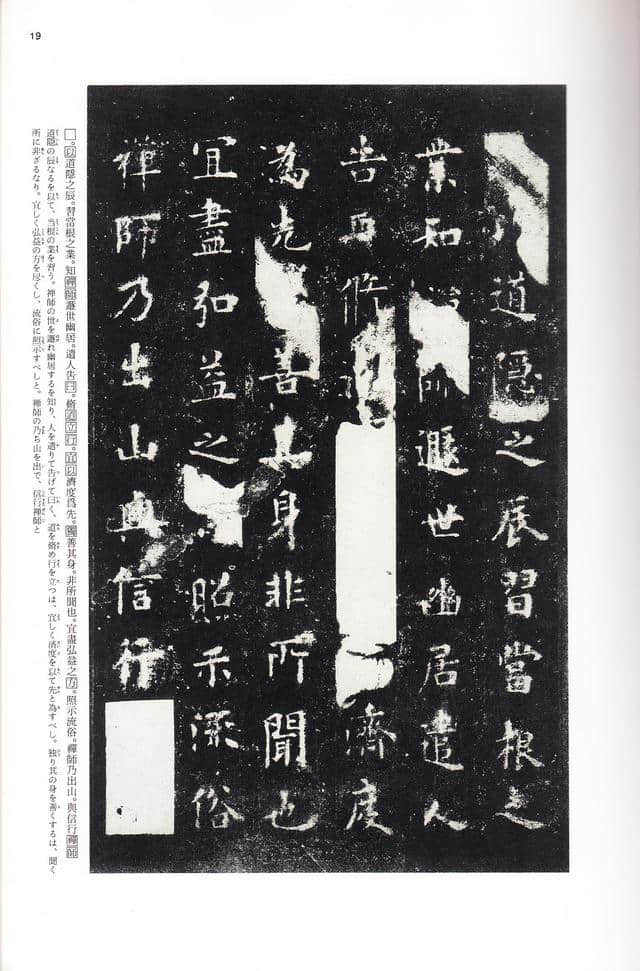 19
道隱之辰習當根之
業知師遯世幽居遣人
告曰脩道濟度
為先善其身非所聞也
宜盡弘益之照示流俗
禪師乃出山與信行
□。以道隱之辰。習當根之業。知禪師遯世幽居。遣人告曰。脩道立行。宜以濟度爲先。獨善其身。非所聞也。宜盡弘益之方。照示流俗。禪師乃出山。與信行禪師
道隠の辰なるを以て、当根の業を習う。禅師の世を遯れ幽居するを知り、人を遣りて告げて曰く、道を脩め行を立つは、宜しく済度を以て先と為すべし。独り其の身を善くするは、聞く
所に非ざるなり。宜しく弘益の方を尽くし、流俗に照示すべしと。禅師の乃ち山を出で、信行禅師と